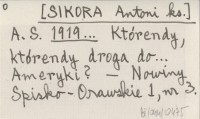 [SIKORA Antoni ks.]
A. S. 1919... Którendy,
którendy droga do...
Ameryki? — Nowiny
Spisko-Orawskie 1, nr 3.